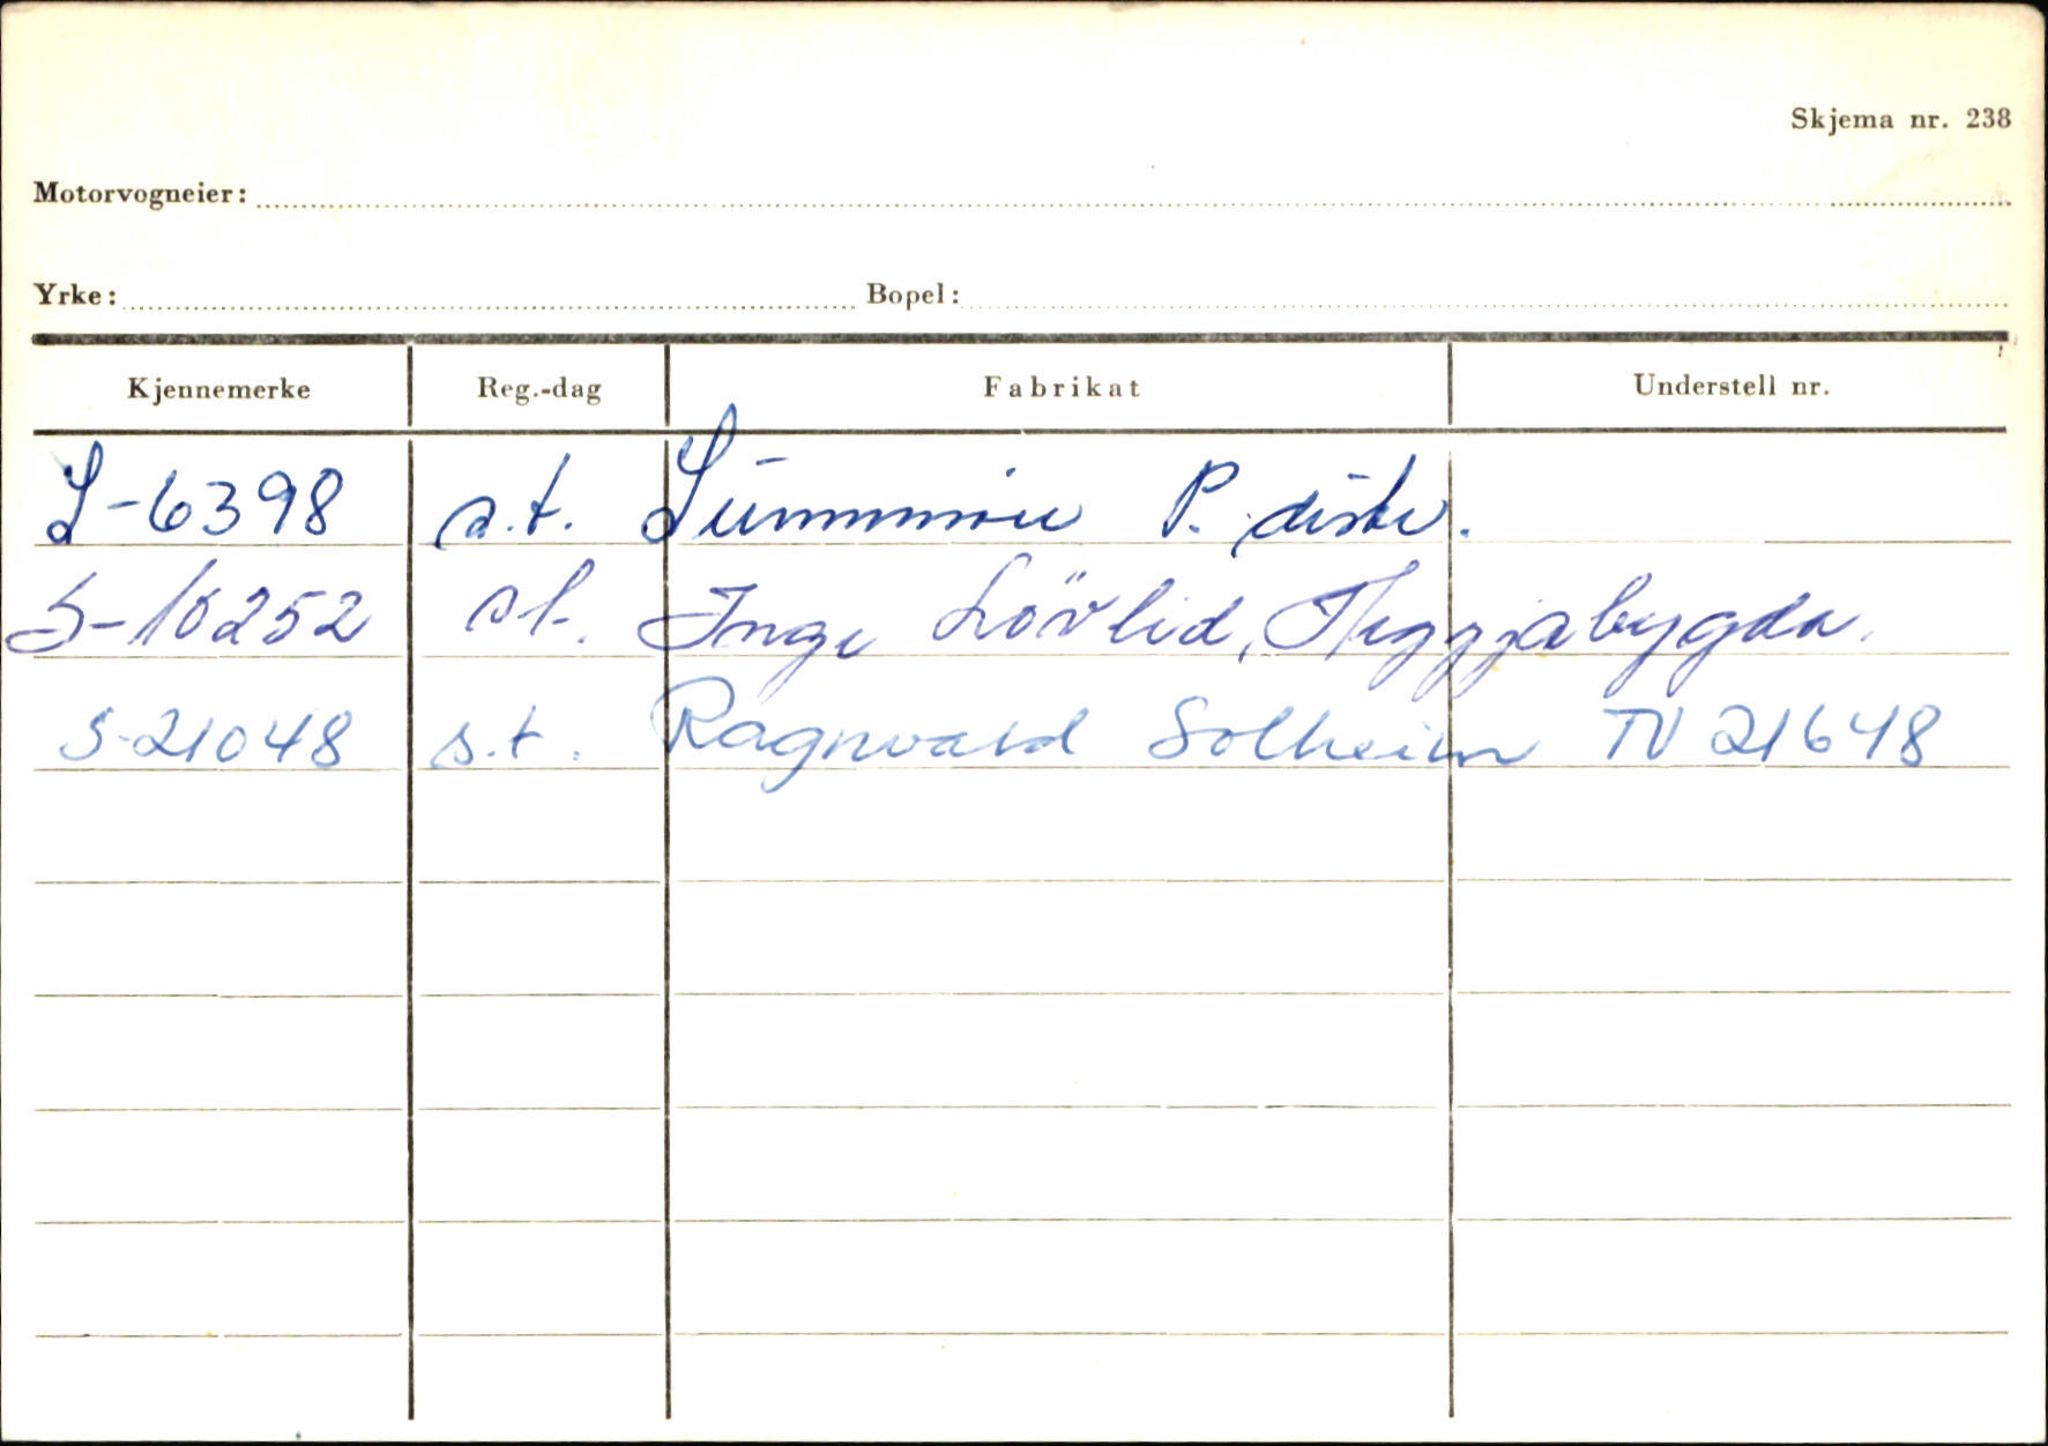 Skjema nr. 238
Motorvogneier:
Yrke: Bopel:
Kjennemerke Reg.-dag Fabrikat Understell nr.
S-6398 s.t. Sunnmøre P. distr.
S-10252 s.t. Inge Lövlid, Fleggjabygda.
S-21048 s.t. Ragnvald Solheim TV 21648